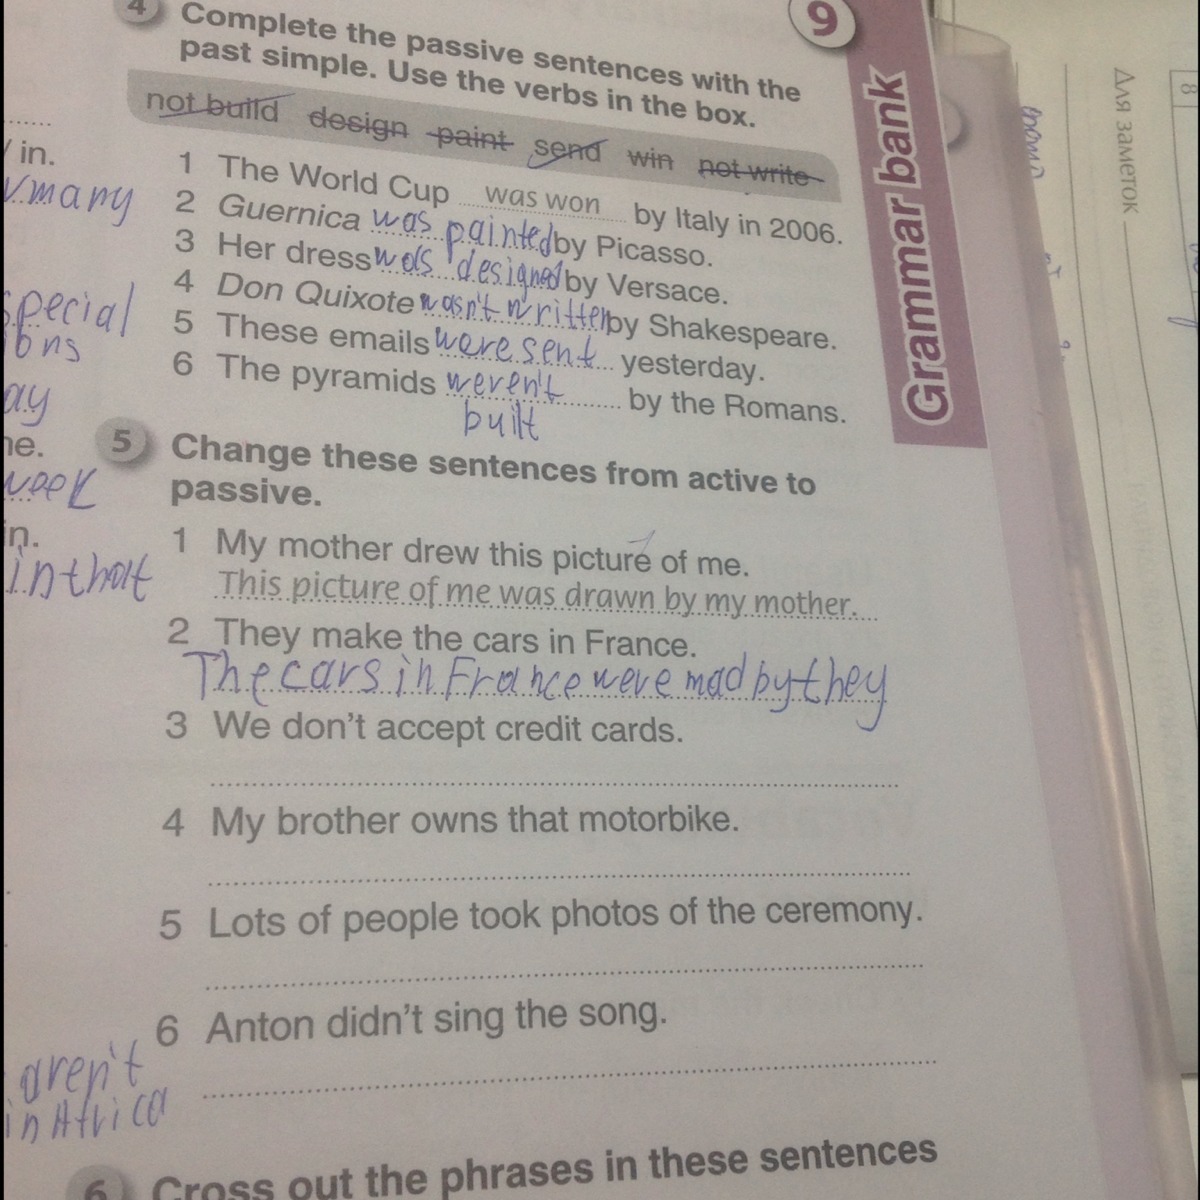 4 Complete the passive sentences with the
past simple. Use the verbs in the box.
not build design paint send win not write
1 The World Cup was won by Italy in 2006.
2 Guernica was painted by Picasso.
3 Her dress was designed by Versace.
4 Don Quixote wasn't written by Shakespeare.
5 These emails were sent yesterday.
6 The pyramids weren't
built
by the Romans.
5 Change these sentences from active to
passive.
1 My mother drew this picture of me.
This picture of me was drawn by my mother.
2 They make the cars in France.
The cars in France were mad by they
3 We don't accept credit cards.
4 My brother owns that motorbike.
5 Lots of people took photos of the ceremony.
6 Anton didn't sing the song.
6 Cross out the phrases in these sentences
9
Grammar bank
in.
many
ay
week
in that
aren't
in Africa
Для заметок
8